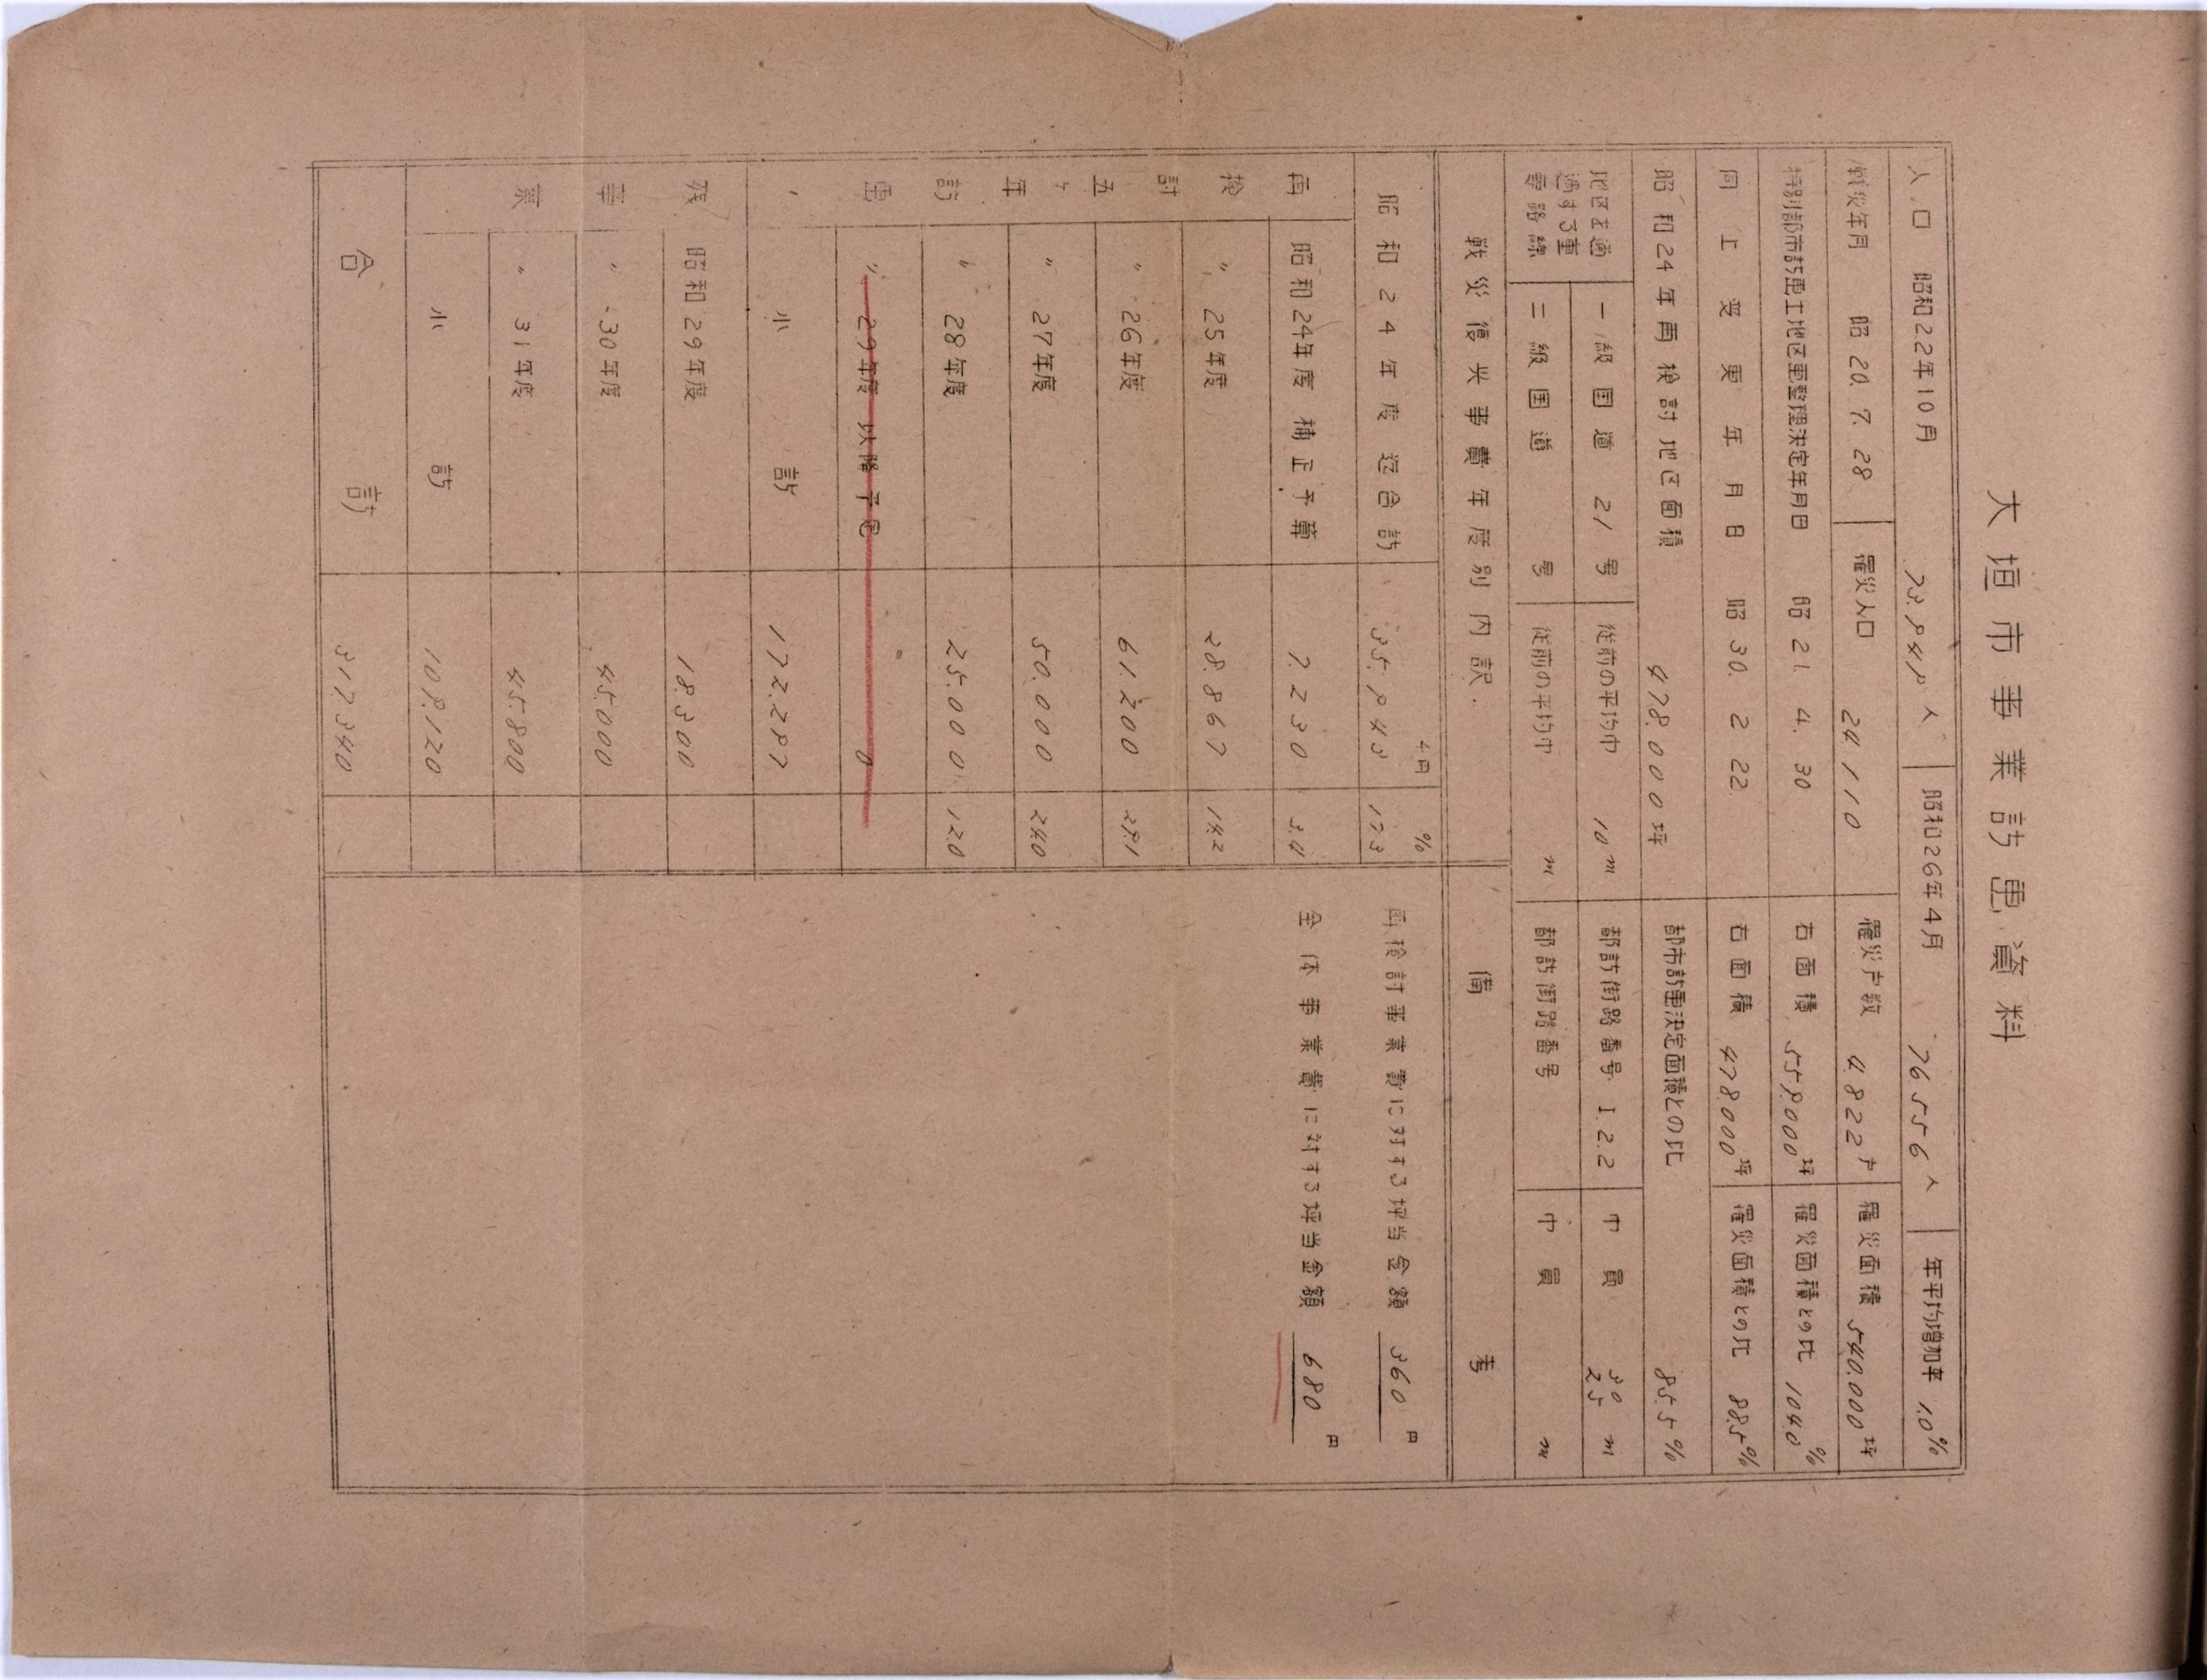 大垣市事業計画資料
人口 昭和22年10月 73.941人 昭和26年4月 76556人 年平均増加率 1.0%
戦災年月 昭20.7.28 罹災人口 24110 罹災戸数 4.822戸 罹災面積 540.000坪
特別都市計画土地区画整理決定年月日 昭21.4.30 右面積 559.000坪 罹災面積との比 104.0%
同上変更年月日 昭30.2.22 右面積 478.000坪 罹災面積との比 88.5%
昭和24年再検討地区面積 478.000坪 都市計画決定面積との比 85.5%
地区を通過する重要路線 一級国道 21号 従前の平均巾 10m 都計街路番号 1.2.2 巾員 30 25 m
二級国道 号 従前の平均巾 m 都計街路番号 巾員 m
戦災復興事業費年度別内訳. 備考
千円 %
昭和24年度迄合計 35.943 17.3 再検討事業費に対する坪当金額 360円
再検討五ヶ年計画
昭和24年度補正予算 7.230 3.4 全体事業費に対する坪当金額 680円
〃 25年度 28.867 14.2
〃 26年度 61.200 29.1
〃 27年度 50.000 24.0
〃 28年度 25.000 12.0
〃 29年度以降予定 0
小計 172.297
残事業
昭和29年度 18.300
〃 30年度 45.000
〃 31年度 45.800
小計 109.120
合計 317340